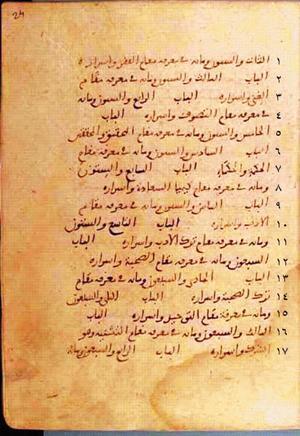 24
١ الثاني والستون ومائة في معرفة مقام الفقر واسراره
٢ الباب الثالث والستون ومائة في معرفة مقام
٣ الغنى واسراره الباب الرابع والستون ومائة
٤ في معرفة مقام التصوف واسراره الباب
٥ الخامس والستون ومائة في معرفة مقام التحقيق والمحققين
٦ الباب السادس والستون ومائة في معرفة مقام
٧ الحكمة والحكماء الباب السابع والستون
٨ ومائة في معرفة مقام كيميا السعادة واسراره
٩ الباب الثامن والستون ومائة في معرفة مقام
١٠ الادب واسراره الباب التاسع والستون
١١ ومائة في معرفة مقام ترك الادب واسراره الباب
١٢ السبعون ومائة في معرفة مقام الصحبة واسراره
١٣ الباب الحادي والسبعون ومائة في معرفة مقام
١٤ ترك الصحبة واسراره الباب الثاني والسبعون
١٥ ومائة في معرفة مقام التوحيد واسراره الباب
١٦ الثالث والسبعون ومائة في معرفة مقام التثنية وهو
١٧ الشرك واسراره الباب الرابع والسبعون ومائة